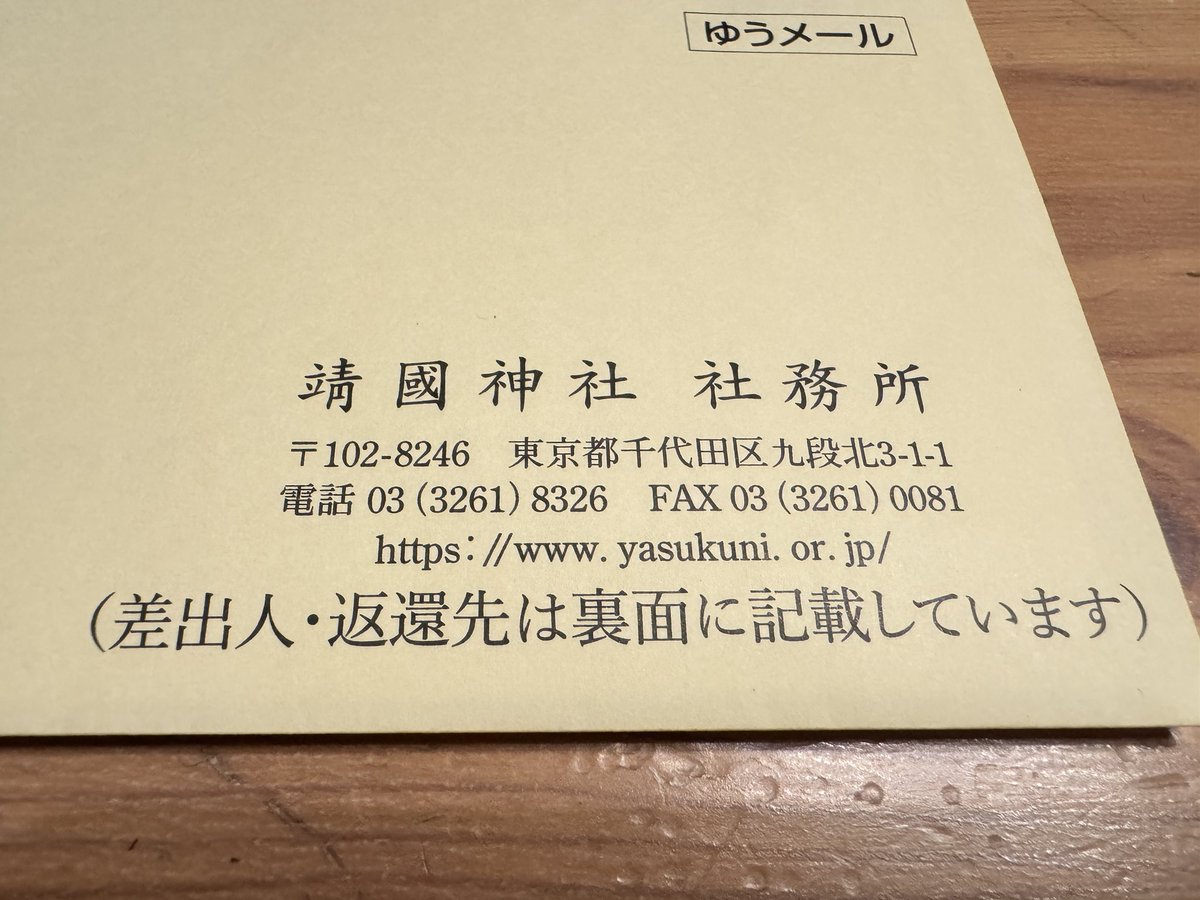 ゆうメール
靖國神社 社務所
〒102-8246 東京都千代田区九段北3-1-1
電話 03(3261)8326 FAX 03(3261)0081
https://www.yasukuni.or.jp/
(差出人・返還先は裏面に記載しています)